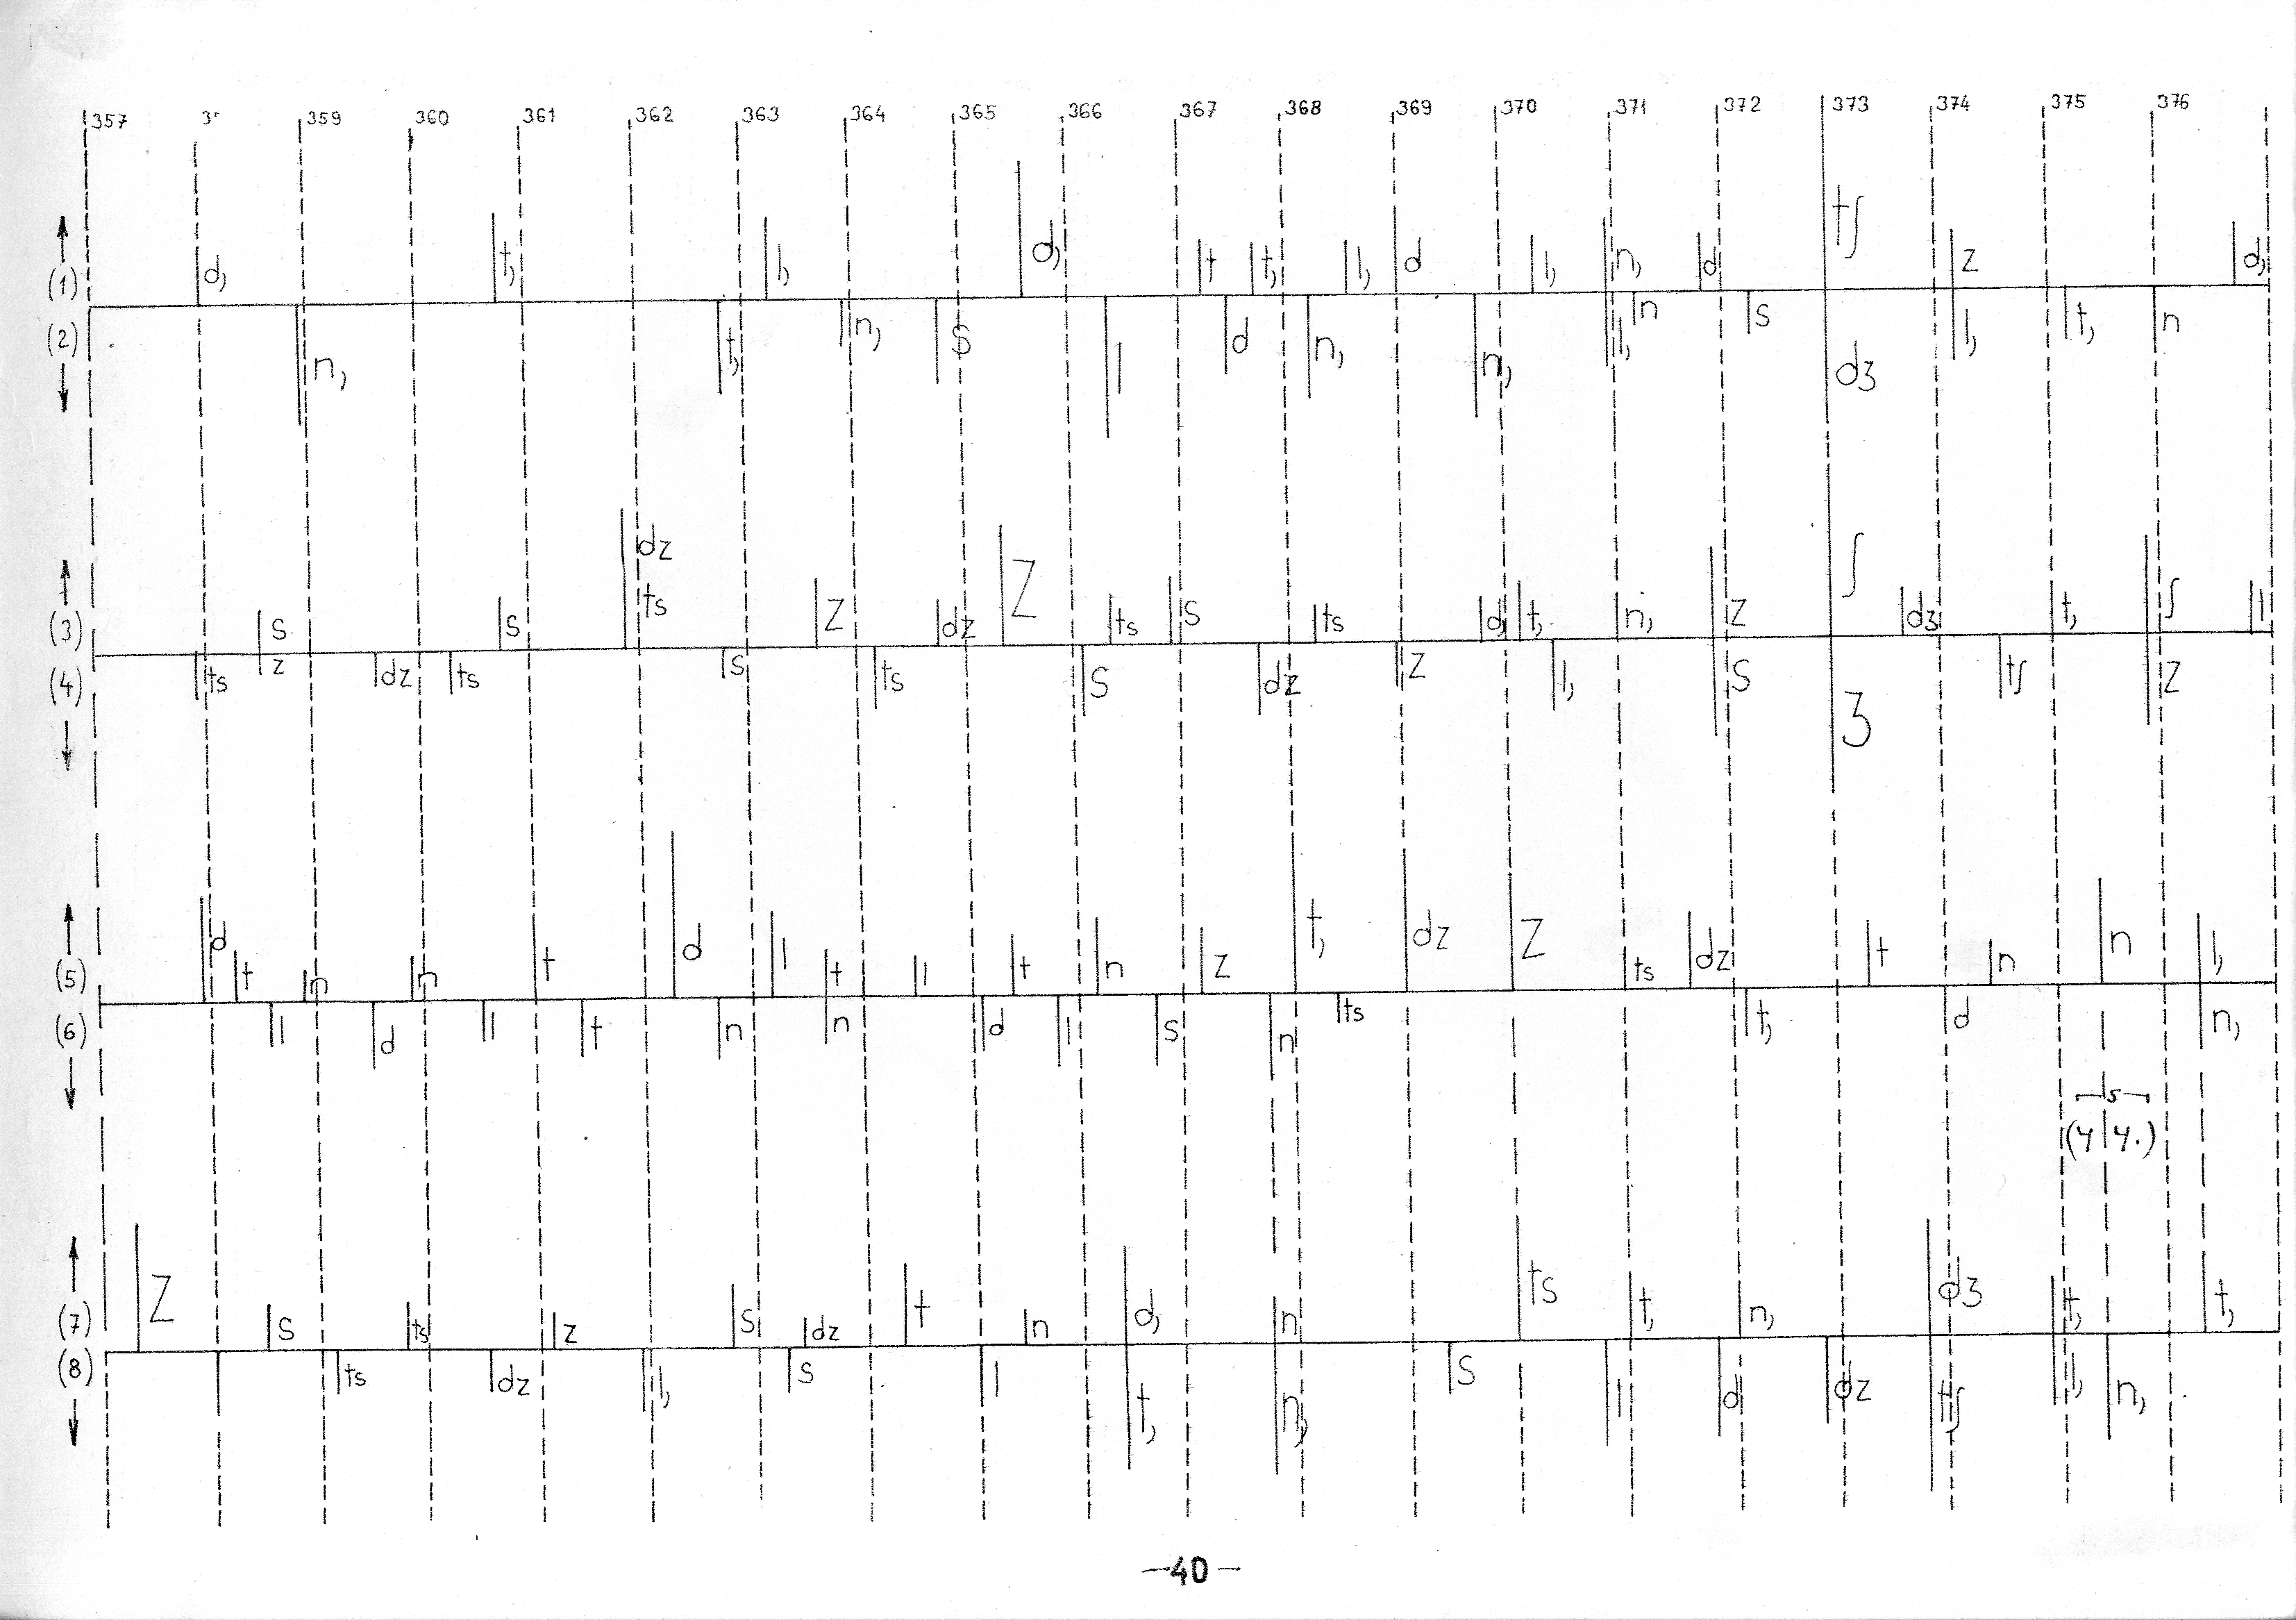 357 3 359 360 361 362 363 364 365 366 367 368 369 370 371 372 373 374 375 376
(1) d, t, l, d, t t, l, d l, n, d tʃ z d,
(2) n, t, n, s l d n, n, l, n s dʒ l, t, n
(3) s s dz ts z dz z ts s ts d, t, n, z ʃ dʒ t, ʃ l
(4) ts z dz ts s ts s dz z l, s ʒ tʃ z
(5) d t n n t d l t l t n z t, dz z ts dz t n n l,
(6) l d l t n n d l s n ts t, d n,
5
(7) z s ts ts z s dz t n d, n ts t, n, dʒ t, t,
(8) ts dz l, s l t, n, s l d dz tʃ l, n,
—40—